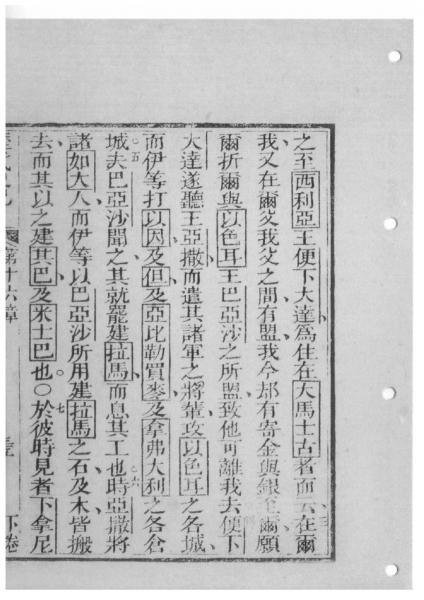 之至西利亞王便下大達爲住在大馬士古者而云在爾
我又在爾父我父之間有盟我今却有寄金與銀至爾願
爾折爾與以色耳王巴亞沙之所盟致他可離我去便下
大達遂聽王亞撒而遣其諸軍之將輩攻以色耳之各城
而伊等打以因及但及亞比勒買麥及拿弗大利之各倉
城○五夫巴亞沙聞之其就罷建拉馬而息其工也○六時亞撒將
諸如大人而伊等以巴亞沙所用建拉馬之石及木皆搬
去而其以之建其巴及米士巴也○七於彼時見者下拿尼
第十六章 下卷